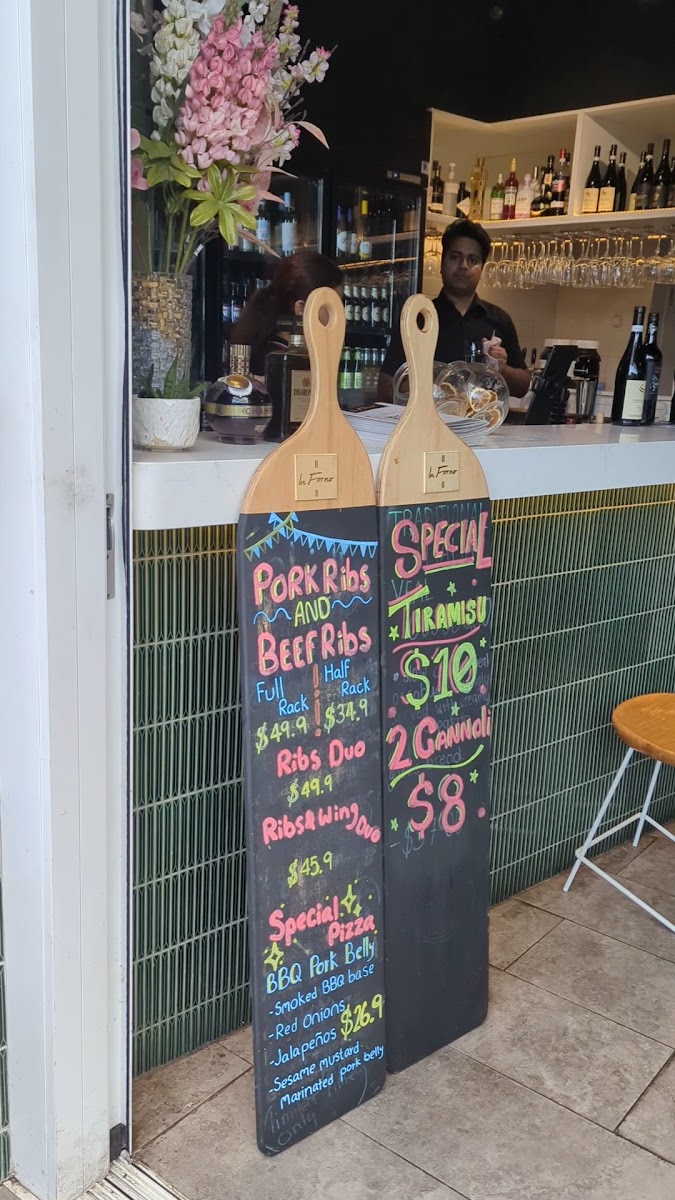 In Forno
PORK RIBS
AND
BEEF RIBS
Full Rack
$49.9
Half Rack
$34.9
Ribs Duo
$49.9
Ribs & Wing Duo
$45.9
Special Pizza
BBQ Pork Belly
-Smoked BBQ base
-Red Onions
-Jalapeños
$26.9
-Sesame mustard
Marinated pork belly
Only
In Forno
TRADITIONAL
SPECIAL
VEAL
TIRAMISU
$10
2 Cannoli
$8